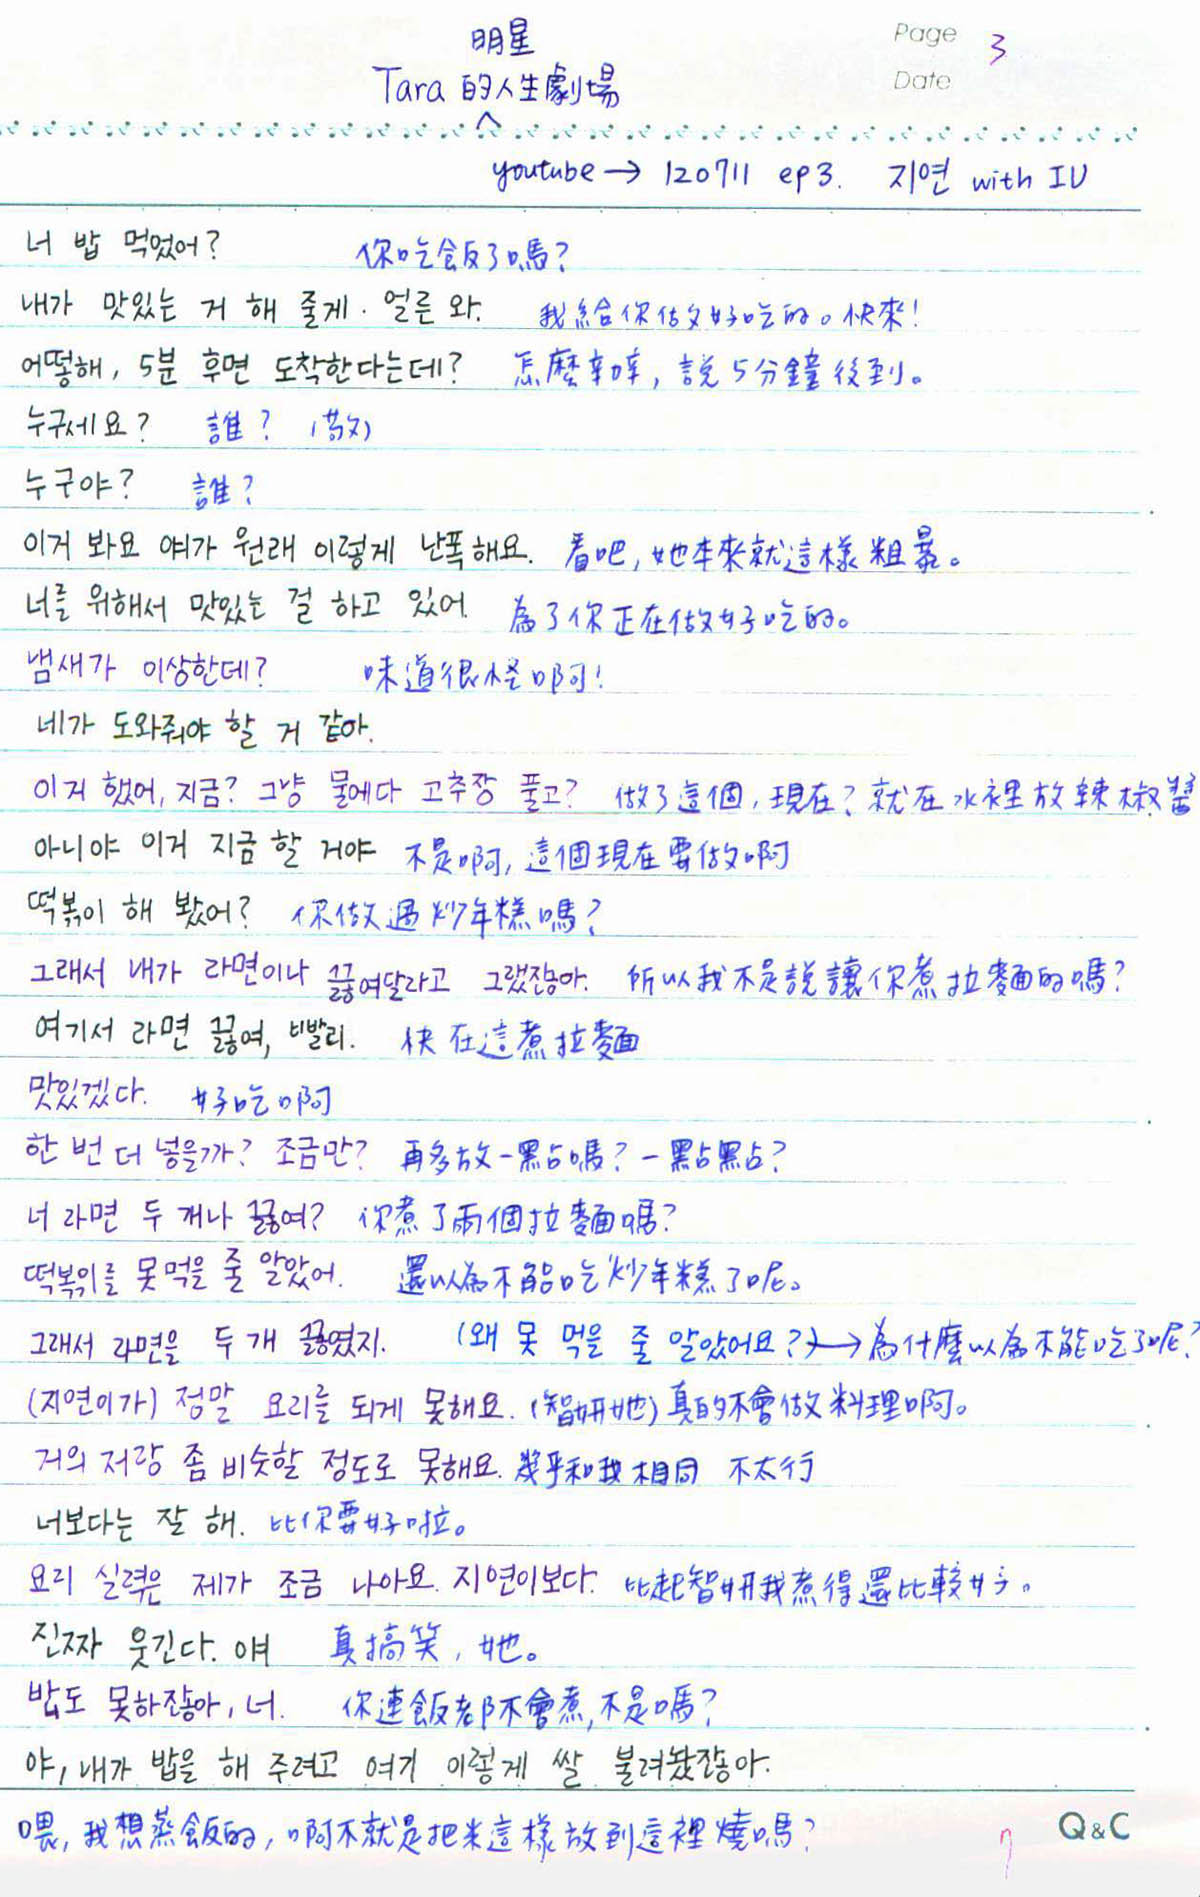 Page 3
明星
Tara 的人生劇場
Date
youtube → 120711 ep3. 지연 with IU
너 밥 먹었어? 你吃飯了嗎?
내가 맛있는 거 해 줄게. 얼른 와. 我給你做好吃的。快來!
어떻해, 5분 후면 도착한다는데? 怎麼辦, 說5分鐘後到。
누구세요? 誰? (敬)
누구야? 誰?
이거 봐요 얘가 원래 이렇게 난폭해요. 看吧, 她本來就這樣粗暴。
너를 위해서 맛있는 걸 하고 있어 為了你正在做好吃的。
냄새가 이상한데? 味道很怪啊!
네가 도와줘야 할 거 같아.
이거 했어, 지금? 그냥 물에다 고추장 풀고? 做了這個, 現在? 就在水裡放辣椒醬
아니야 이거 지금 할 거야 不是啊, 這個現在要做啊
떡볶이 해 봤어? 你做過炒年糕嗎?
그래서 내가 라면이나 끓여달라고 그랬잖아. 所以我不是說讓你煮拉麵的嗎?
여기서 라면 끓여, 빨리. 快在這煮拉麵
맛있겠다. 好吃啊
한 번 더 넣을까? 조금만? 再多放一點嗎? 一點點?
너 라면 두 개나 끓여? 你煮了兩個拉麵嗎?
떡볶위를 못 먹을 줄 알았어. 還以為不能吃炒年糕了呢。
그래서 라면을 두 개 끓였지. (왜 못 먹을 줄 알았어요?) → 為什麼以為不能吃了呢?
(지연이가) 정말 요리를 되게 못해요. (智妍她) 真的不會做料理啊。
거의 저랑 좀 비슷할 정도로 못해요. 幾乎和我相同 不太行
너보다는 잘 해. 比你要好啦。
요리 실력은 제가 조금 나아요. 지연이보다. 比起智妍我煮得還比較好。
진짜 웃긴다. 얘 真搞笑, 她。
밥도 못하잖아, 너. 你連飯都不會煮, 不是嗎?
야, 내가 밥을 해 주려고 여기 이렇게 쌀 불려놨잖아.
喂, 我想蒸飯的, 啊不就是把米這樣放到這裡燒嗎?
Q&C